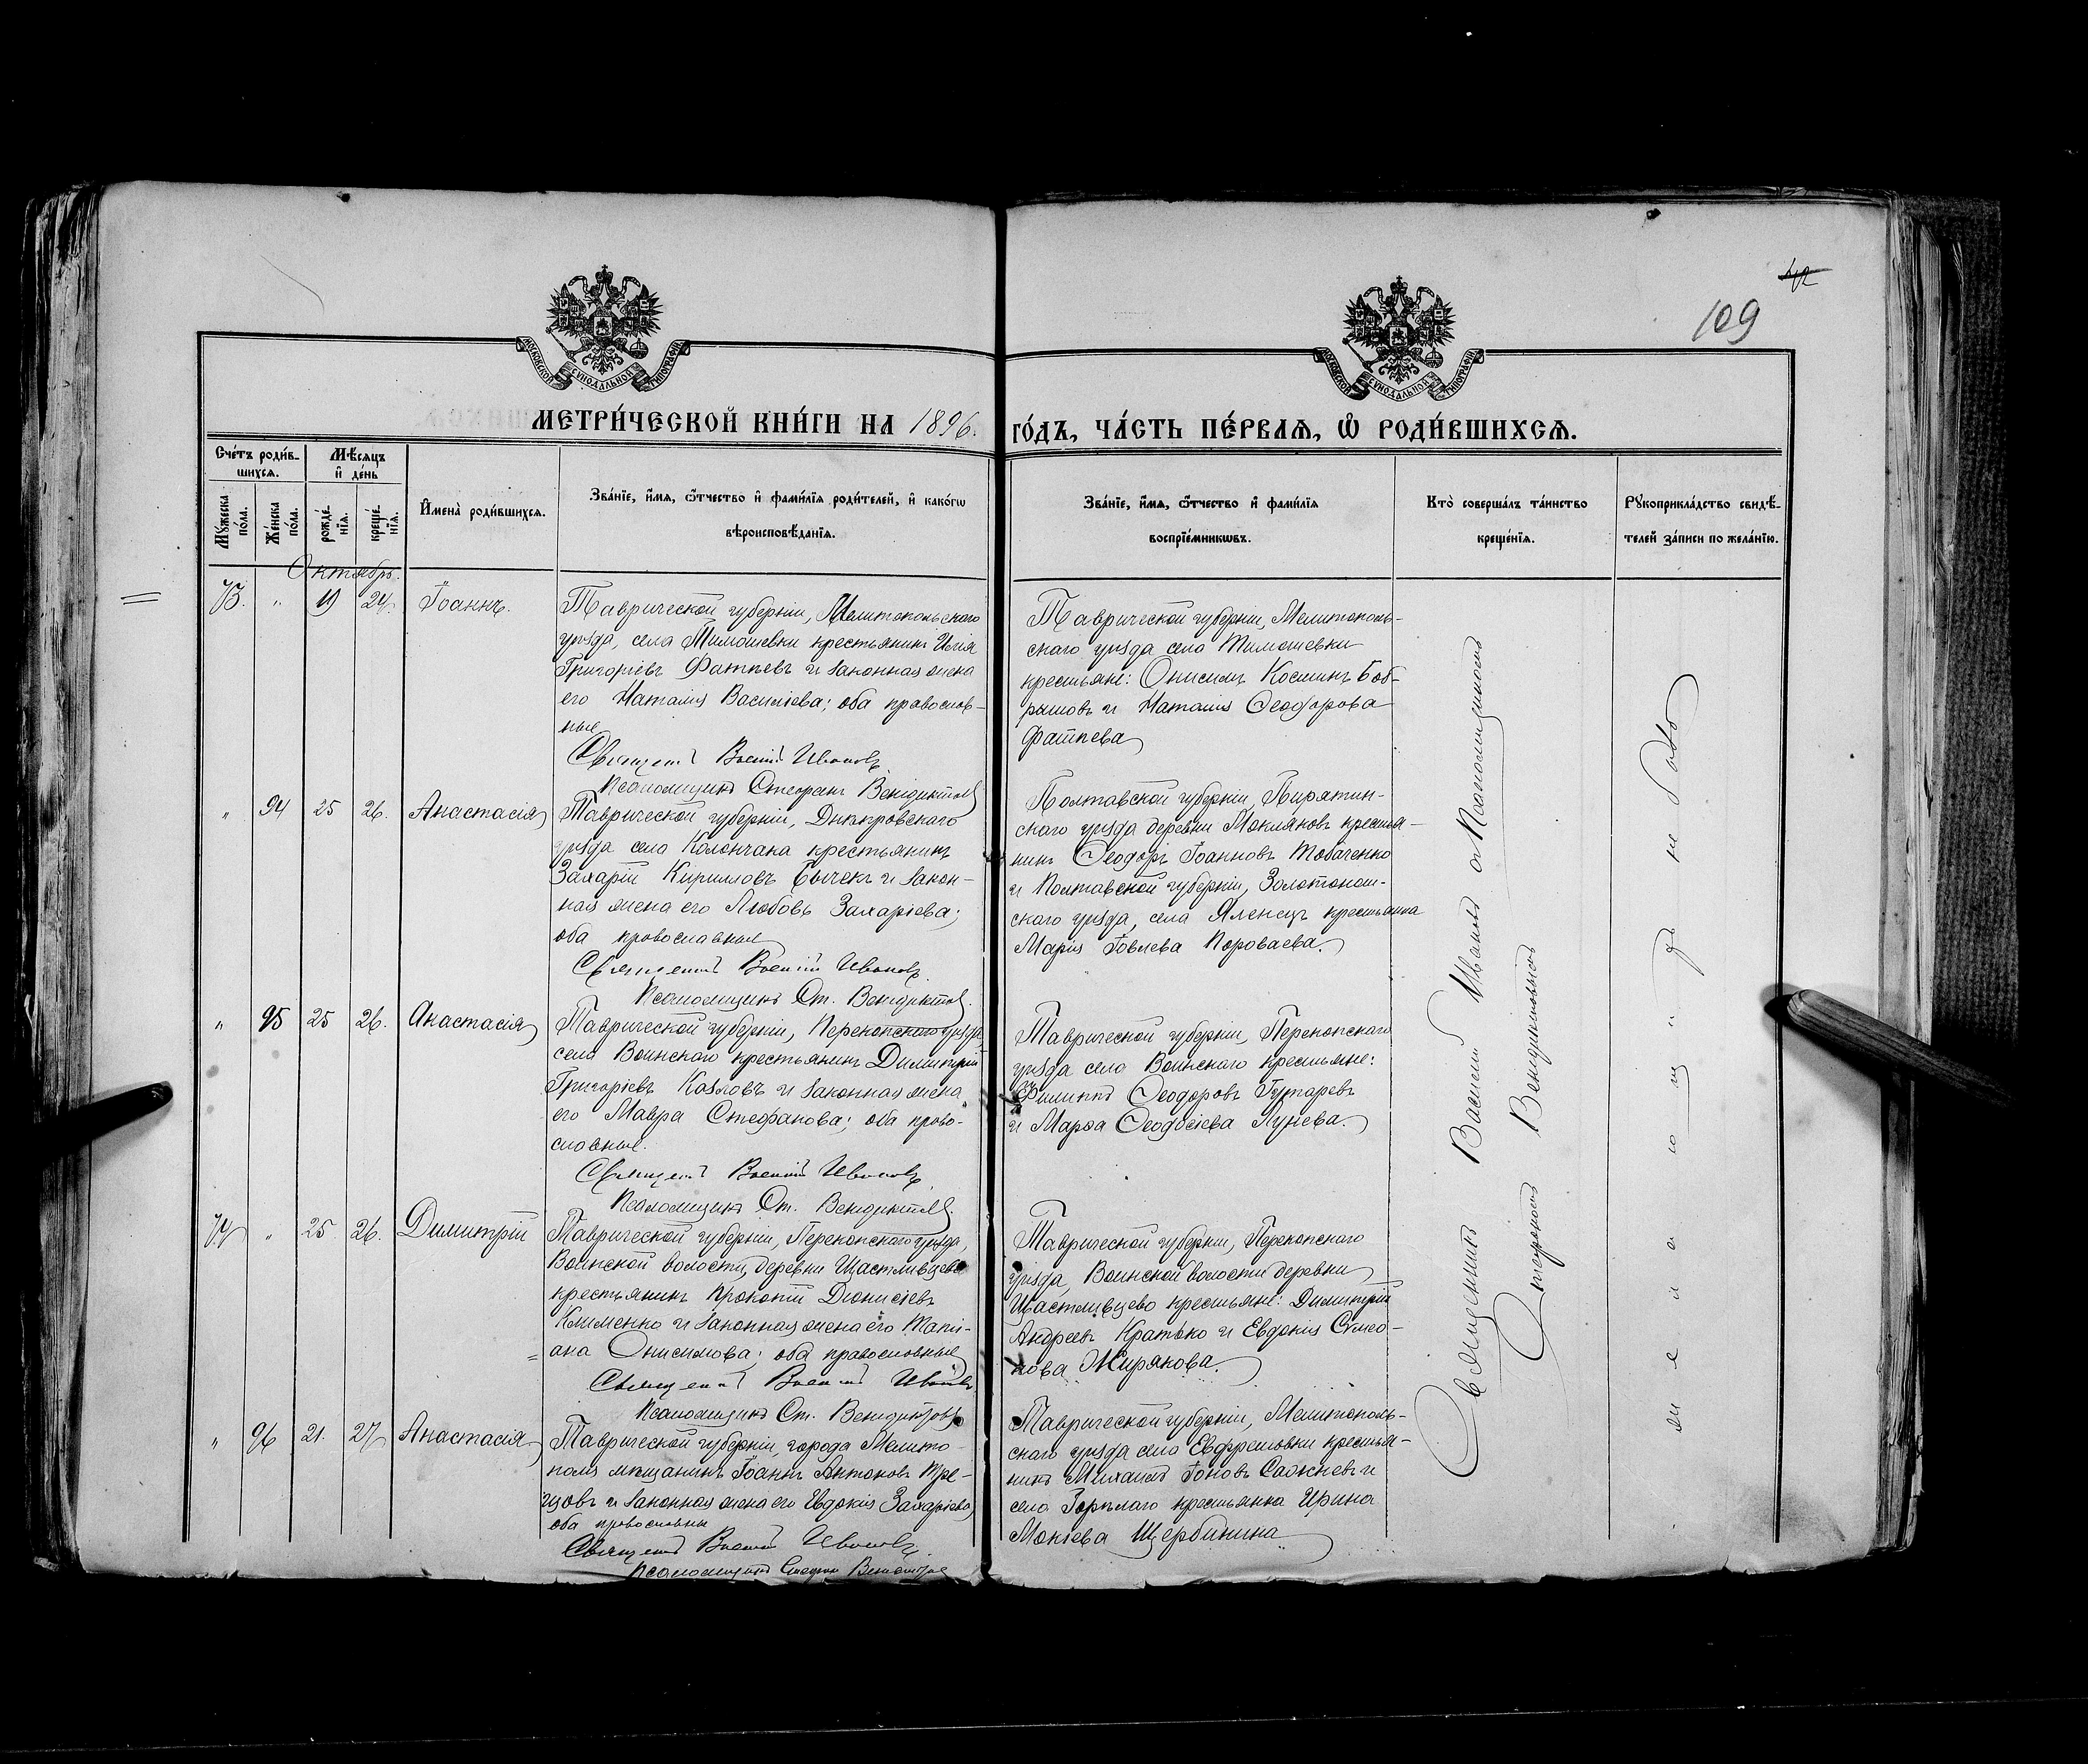 109
МОСКОВСКОЙ СѴНОДАЛЬНОЙ ТИПОГРАФІИ
МОСКОВСКОЙ СѴНОДАЛЬНОЙ ТИПОГРАФІИ
МЕТРИ́ЧЕСКОЙ КНИ́ГИ НА 1896.
ГО́ДЪ, ЧА́СТЬ ПЕ́РВАѦ, Ѡ РОДИ́ВШИХСѦ.
Сче́тъ роди́в-
шихсѧ.
Мѣ́сѧцъ
и҆ де́нь
Мꙋжеска
по́ла.
Же́нска
по́ла.
рожде́-
нїѧ.
креще́-
нїѧ.
И҆мена̀ роди́вшихсѧ.
Зва́нїе, и҆́мѧ, ѻ҆́тчество и҆ фами́лїѧ роди́телей, и҆ како́гѡ
вѣроисповѣ́данїѧ.
Зва́нїе, и҆́мѧ, ѻ҆́тчество и҆ фами́лїѧ
воспрїе́мникѡвъ.
Кто̀ соверша́лъ та́инство
креще́нїѧ.
Рꙋкоприкла́дство свидѣ́-
телей за́писи по жела́нїю.
Октябрь.
73. " 19 24. Іоаннъ.
Таврической губерніи, Мелитопольскаго
уѣзда, села Тимошевки крестьянинъ Илія
Григоріевъ Фатѣевъ и законная жена
его Наталія Василіева; оба православ-
ные
Священ. Василій Ивановъ
Псаломщикъ Стефанъ Венидиктовъ
Таврической губерніи, Мелитополь-
скаго уѣзда села Тимошевки
крестьяне: Онисимъ Косминъ Боб-
рышовъ и Наталія Ѳеодорова
Фатѣева
" 94 25 26. Анастасія
Таврической губерніи, Днѣпровскаго
уѣзда села Колончака крестьянинъ
Захарій Кирилловъ Бычекъ и закон-
ная жена его Любовь Захаріева;
оба православные
Священникъ Василій Ивановъ.
Псаломщикъ Ст. Венидиктовъ.
Полтавской губерніи, Пирятин-
скаго уѣзда деревни Мокляковъ крестья-
нинъ Ѳеодоръ Іоанновъ Тобаченко
и Полтавской губерніи, Золотонош-
скаго уѣзда, села Яленецъ крестьянка
Марія Іовлева Пороваева.
" 95 25 26. Анастасія
Таврической губерніи, Перекопскаго уѣзда,
села Воинскаго крестьянинъ Димитрій
Григоріевъ Козловъ и законная жена
его Мавра Стефанова; оба право-
славные.
Священ. Василій Ивановъ
Псаломщикъ Ст. Венидиктовъ.
Таврической губерніи, Перекопскаго
уѣзда села Воинскаго крестьяне:
Филиппъ Ѳеодоровъ Гутаревъ
и Марѳа Ѳеодосіева Лунева.
74 " 25 26. Димитрій
Таврической губерніи, Перекопскаго уѣзда,
Воинской волости, деревни Щастливцево
крестьянинъ Прокопій Діонисіевъ
Клименко и законная жена его Таті-
ана Онисимова; оба православные
Священникъ Василій Ивановъ
Псаломщикъ Ст. Венидиктовъ
Таврической губерніи, Перекопскаго
уѣзда, Воинской волости деревни
Щастливцево крестьяне: Димитрій
Андреевъ Кратько и Евдокія Сѵмео-
нова Жирякова.
" 96 21. 27 Анастасія
Таврической губерніи, города Мелито-
поля мѣщанинъ Іоаннъ Антоновъ Тре-
щовъ и законная жена его Евдокія Захаріева,
оба православны
Священникъ Василій Ивановъ.
Псаломщикъ Стефанъ Венидиктовъ
Таврической губерніи, Мелитополь-
скаго уѣзда села Ефремовки крестья-
нинъ Михаилъ Іоновъ Сажневъ и
села Горѣлаго крестьянка Ирина
Мокіева Щербинина
Священникъ Василій Ивановъ съ Псаломщикомъ
Стефаномъ Венидиктовымъ
желающихъ не было